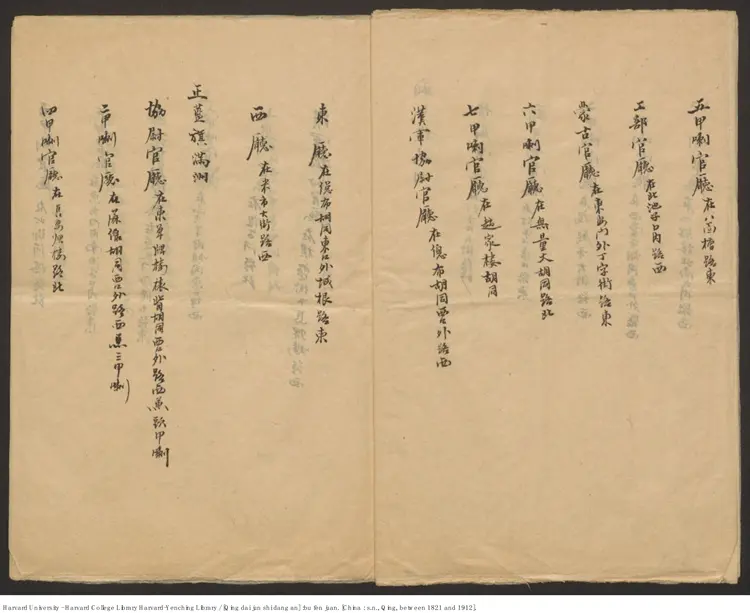 五甲喇官廳在 箭桿 路東
工部官廳在北池子口內路西
蒙古官廳在東安門外丁字街路東
六甲喇官廳在無量大胡同路北
七甲喇官廳在趙家樓胡同
漢軍協尉官廳在總布胡同西口外路西
東 廳在總布胡同東口外城根路東
西 廳在米市大街路西
正藍旗滿洲
協尉官廳在東單牌樓裱褙胡同西口外路西兼頭甲喇
二甲喇官廳在蘇州胡同西口外路西兼三甲喇
四甲喇官廳在 牌樓路北
Harvard University - Harvard College Library Harvard-Yenching Library / [Qing dai jun shi dang an] : bu fen juan. [China : s.n., Qing, between 1821 and 1912].